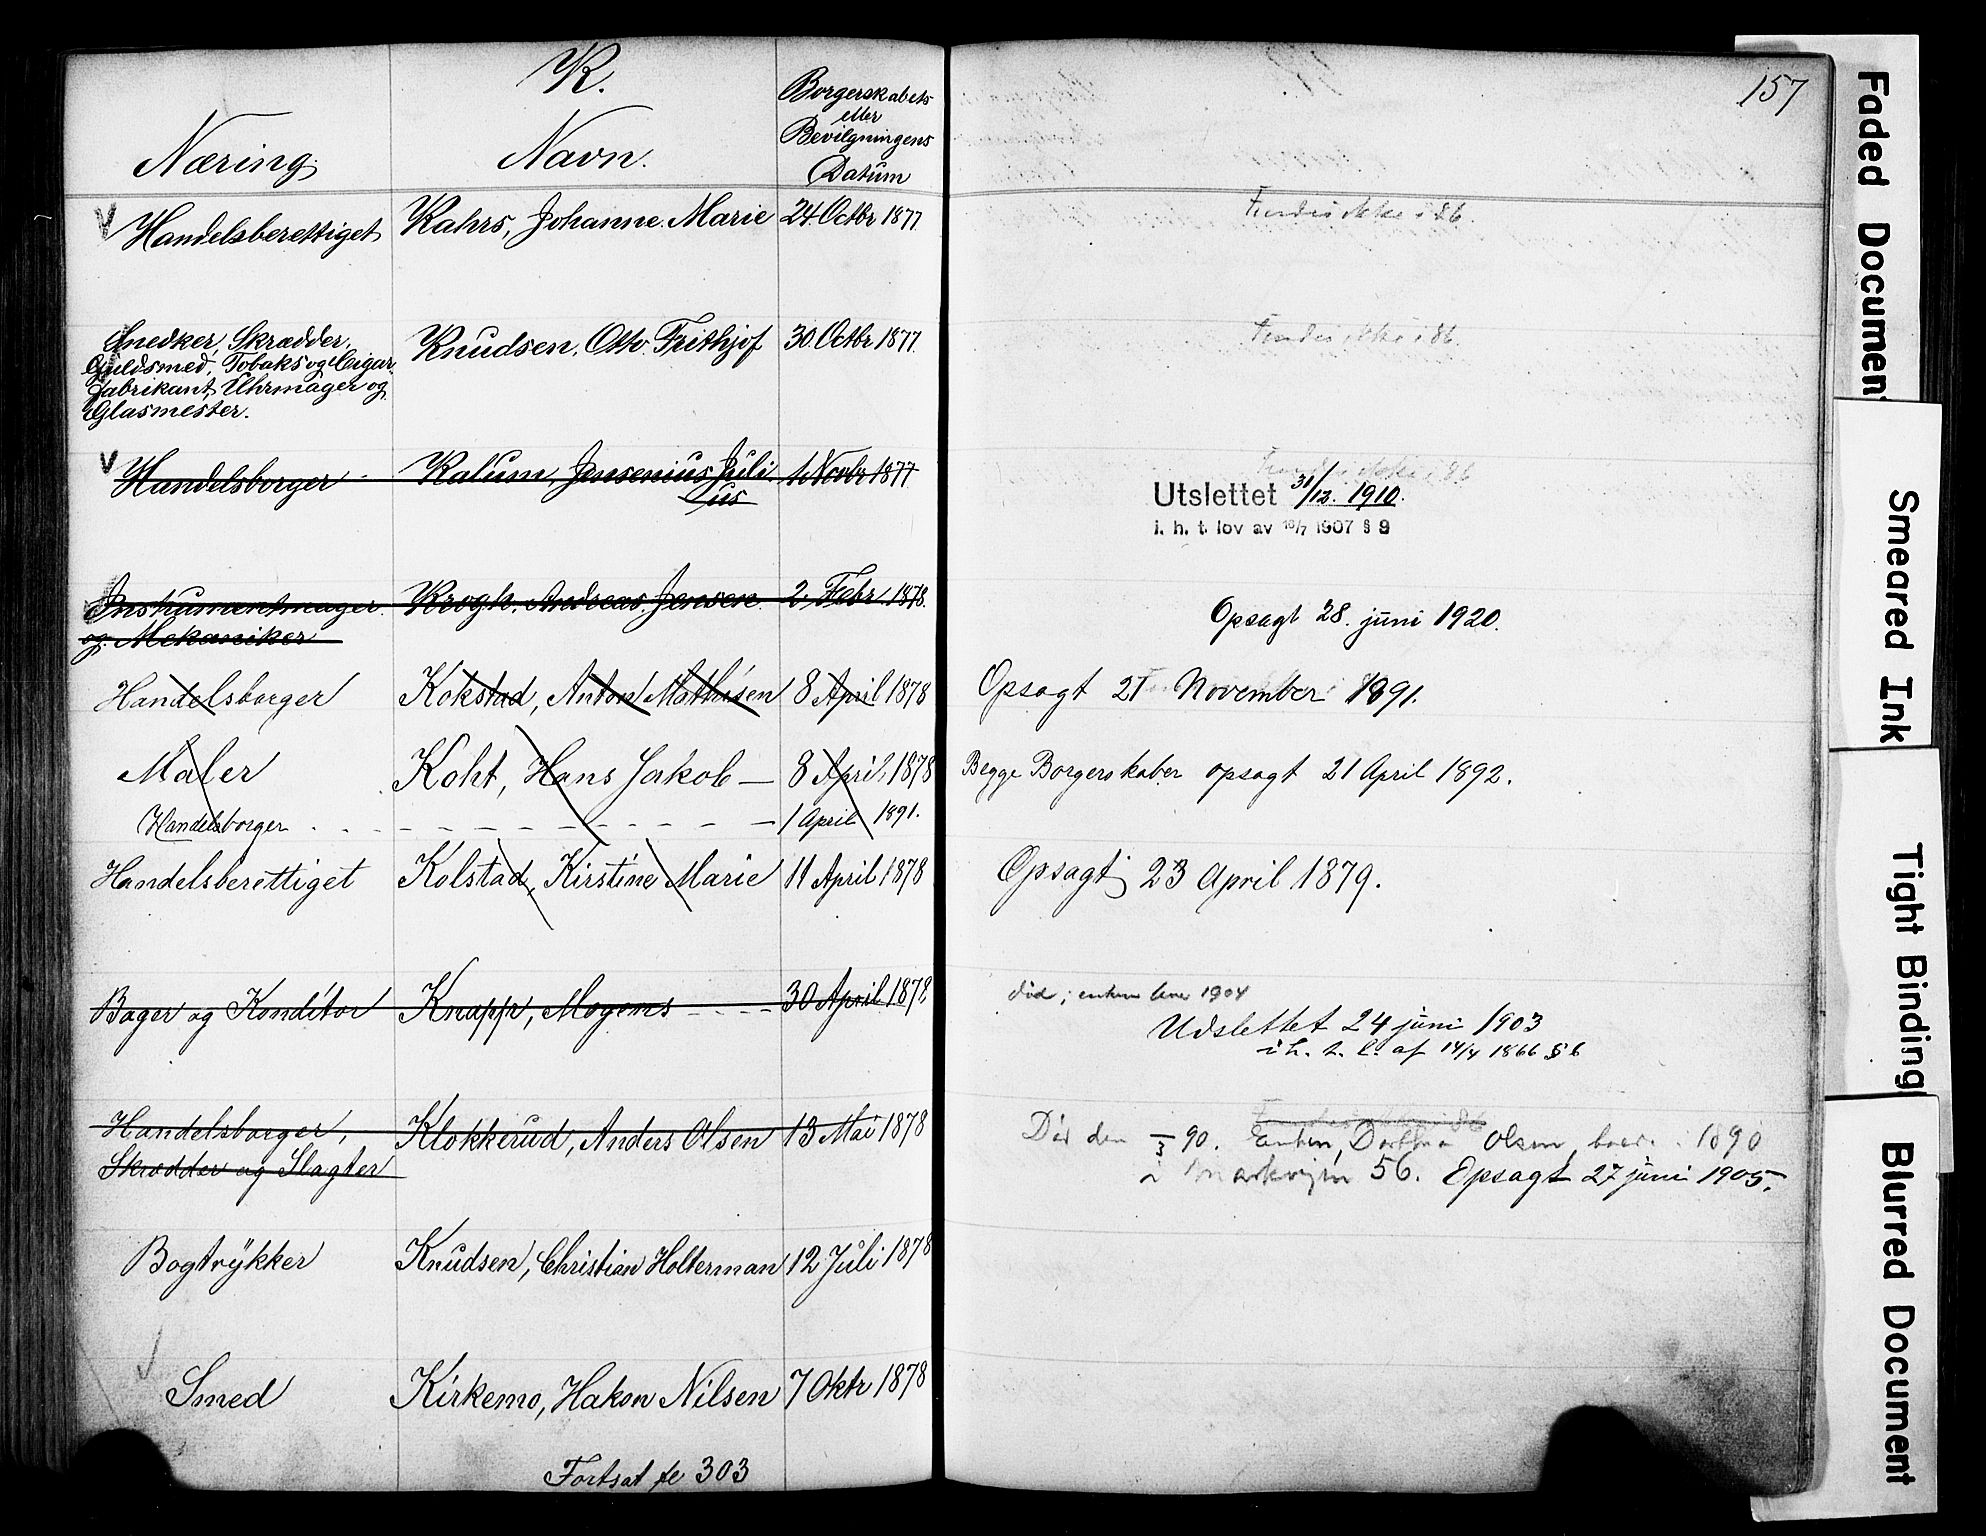 K.
157
Næring.
Navn.
Borgerskabets
eller
Bevilgningens
Datum
Handelsberettiget Kahrs, Johanne Marie 24 Octbr 1877 Findes ikke i 86.
Snedker, Skrædder, Knudsen, Otto Frithjof 30. Octbr 1877. Findes ikke i 86.
Guldsmed, Tobaks og Cigar
fabrikant, Uhrmager og
Glasmester.
Handelsborger Kalum, Jensenius Juli 1 Novbr 1877 Findes ikke i 86
us
Utslettet 31/12. 1910.
i. h. t. lov av 10/7 1907 § 9
Instrumentmager Krogh, Andreas Jensen 2 Febr 1878.
og Mekaniker
Opsagt 28. juni 1920.
Handelsborger Kokstad, Anton Mathisen 8 April 1878 Opsagt 21 November 1891.
Maler Koht, Hans Jakob — 8 April 1878 Begge Borgerskaber opsagt 21 April 1892.
Handelsborger — 1 April 1891.
Handelsberettiget Kolstad, Kirstine Marie 11 April 1878 Opsagt 23 April 1879.
Bager og Konditor Knapp, Mogens 30 April 1878 død; enken lever 1904
Udslettet 24 juni 1903
i h. t. l. af 14/4 1866 § 6
Handelsborger, Klokkerud, Anders Olsen 13 Mai 1878 Findes ikke i 86
Skrædder og Slagter
Død den 90. Enken, Dorthea Olsen, 1890
i Markvejen 56. Opsagt 27 juni 1905.
Bogtrykker Knudsen, Christian Holterman 12 Juli 1878
Smed Kirkemo, Hakon Nilsen 7 Oktr 1878
Fortsat 303
Faded Document
Smeared Ink
Tight Binding
Blurred Document